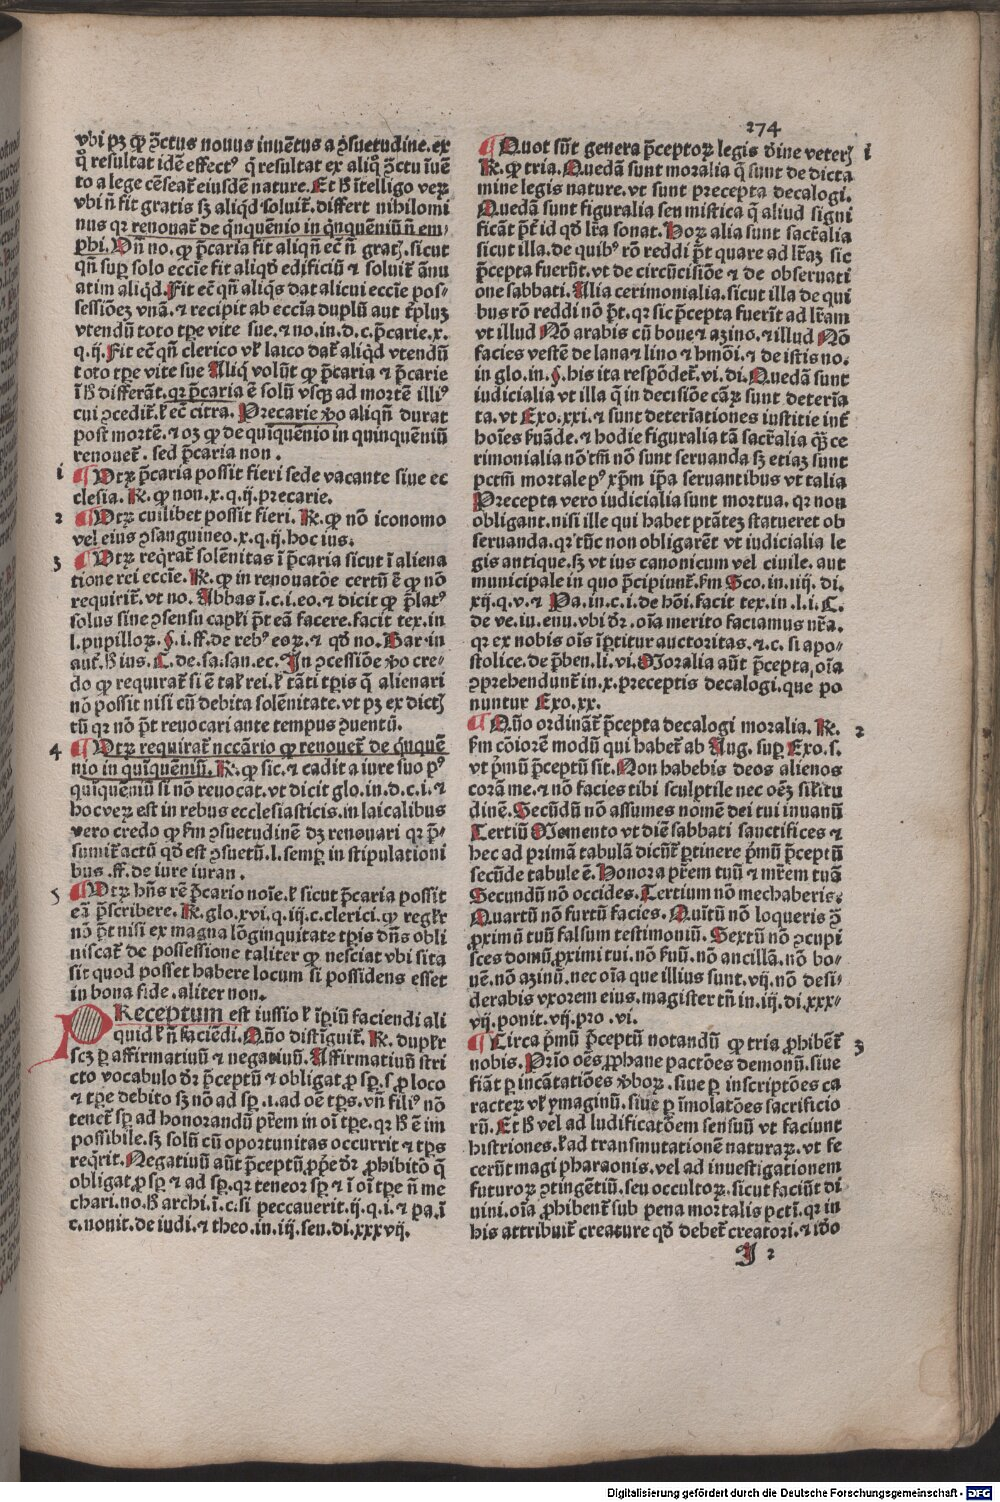 274
vbi pꝫ ꝙ ꝯ̄ctus nouus inuētus a ꝯsuetudine.ex
q̊ resultat idē effectꝰ q̄ resultat ex aliq̊ ꝯ̄ctu īuē
to a lege cēseat̄ eiusdē nature.Et ꝧ ītelligo verꝫ
vbi n̄ fit gratis sꝫ aliq̇d soluit̄.differt nihilomi
nus qꝛ renouat̄ de q̇nquēnio in q̇nquēniū n̄ em⸗
phi.Dn̄ no.ꝙ p̄caria fit aliqn̄ ec̄ n̄ gratꝭ.sicut
qn̄ suꝑ solo eccīe fit aliqḋ edificiū ⁊ soluit̄ ānu
atim aliq̇d.Fit ec̄ qn̄ aliq̇s dat alicui eccīe pos⸗
sessiōeꝫ vnā.⁊ recipit ab eccīa duplū aut t̄pluꝫ
vtendū toto tꝑe vite sue.⁊ no.in.d.c.p̄carie.x.
q.ij.Fit ec̄ qn̄ clerico vl̄ laico dat̄ aliq̇d vtendū
toto tꝑe vite sue Aliq̄ volūt ꝙ p̄caria ⁊ p̄carie
ī ꝧ differāt.qꝛ p̄caria ē solū vsqꝫ ad mortē illiꝰ
cui ꝯcedit̄.ł ec̄ citra.Precarie v̊o aliqn̄ durat
post mortē.⁊ oꝫ ꝙ de quīquēnio in quinquēniū
renouet̄.sed p̄caria non.
i ¶Vtꝝ p̄caria possit fieri sede vacante siue ec
clesia.R̄.ꝙ non.x.q.ij.precarie.
2 ¶Vtꝝ cuilibet possit fieri.R̄.ꝙ nō iconomo
vel eius ꝯsanguineo.x.q.ij.hoc ius.
3 ¶Vtꝝ req̇rat̄ solēnitas ī p̄caria sicut ī aliena
tione rei eccīe.R̄.ꝙ in renouatōe certū ē ꝙ nō
requirit̄.vt no.Abbas ī.c.i.eo.⁊ dicit ꝙ p̄latꝰ
solus sine ꝯsensu capłi p̄t eā facere.facit tex.in
l.pupilloꝝ.§.i.ff.de rebꝰ eoꝝ.⁊ qḋ no.Bar.in
aut̄.ꝧ ius.C.de.sa.san.ec.In ꝯcessiōe v̊o cre⸗
do ꝙ requirat̄ si ē tał rei.ł tāti tꝑis q̄ alienari
nō possit nisi cū debita solēnitate.vt pꝫ ex dictꝭ
tū qꝛ nō p̄t reuocari ante tempus ꝯuentū.
4 ¶Vtꝝ requirat̄ nccārio ꝙ renouet̄ de q̇nquē
nio in quīquēniū.R̄.ꝙ sic.⁊ cadit a iure suo pꝰ
quīquēniū si nō reuocat.vt dicit glo.in.d.c.i.⁊
hoc verꝫ est in rebus ecclesiasticis.in laicalibus
vero credo ꝙ ẜm ꝯsuetudinē dꝫ renouari qꝛ p̄⸗
sumit̄ actū qḋ est ꝯsuetū.l.semꝑ in stipulationi
bus.ff.de iure iuran.
5 ¶Vtꝝ hn̄s rē p̄cario noīe.ł sicut p̄caria possit
eā p̄scribere.R̄.glo.xvi.q.iij.c.clerici.ꝙ regl̄r
nō p̄t nisi ex magna lōginquitate tꝑis dn̄s obli
niscat̄ de possessione taliter ꝙ nesciat vbi sita
sit quod posset habere locum si possidens esset
in bona fide.aliter non.
PReceptum est iussio ł īꝑiū faciendi ali
quid ł n̄ faciēdi.Quō distīguit̄.R̄.dupl̄r
scꝫ ꝑ affirmatiuū ⁊ negatiuū.Affirmatiuū stri
cto vocabulo dr̄ p̄ceptū ⁊ obligat ꝓ sꝑ.s.ꝓ loco
⁊ tꝑe debito sꝫ nō ad sꝑ.i.ad oē tꝑs.vn̄ filiꝰ nō
tenet̄ sꝑ ad honorandū pr̄em in oī tꝑe.qꝛ ꝧ ē im
possibile.sꝫ solū cū oportunitas occurrit ⁊ tꝑs
req̇rit.Negatiuū aūt p̄ceptū ꝓpͥe dr̄ ꝓhibitō q̄
obligat ꝓ sꝑ ⁊ ad sꝑ.qꝛ teneor sꝑ ⁊ ī oī tꝑe n̄ me
chari.no.ꝧ archi.ī.c.si peccauerit.ij.q.i.⁊ pa.ī
c.nouit.de iudi.⁊ theo.in.iij.sen.di.xxxvij.
¶Quot sūt genera p̄ceptoꝝ legis d̄ine veterꝭ i
R̄.ꝙ tria.Quedā sunt moralia q̄ sunt de dicta
mine legis nature.vt sunt precepta decalogi.
Quedā sunt figuralia seu mistica q̄ aliud signi
ficāt p̄t id qḋ lr̄a sonat.Hoꝝ alia sunt sacr̄alia
sicut illa.de quibꝰ rō reddi p̄t quare ad lr̄aꝫ sic
p̄cepta fuerūt.vt de circūcisiōe ⁊ de obseruati
one sabbati.Alia cerimonialia.sicut illa de qui
bus rō reddi nō p̄t.qꝛ sic p̄cepta fuerūt ad lr̄am
vt illud Nō arabis cū boue ⁊ azino.⁊ illud Nō
facies vestē de lana ⁊ lino ⁊ hmōi.⁊ de istis no.
in glo.in.§.his ita respōdet̄.vi.di.Quedā sunt
iudicialia vt illa q̄ in decisiōe cāꝝ sunt deter̄ia
ta.vt Exo.xxi.⁊ sunt deter̄iationes iustitie int̄
hoīes ẜuāde.⁊ hodie figuralia tā sacr̄alia qꝫ̄ ce
rimonialia nō tm̄ nō sunt seruanda sꝫ etiaꝫ sunt
pctm̄ mortale pꝰ xp̄m ip̄a seruantibus vt talia
Precepta vero iudicialia sunt mortua.qꝛ non
obligant.nisi ille qui habet ptāteꝫ statueret ob
seruanda.qꝛ tūc non obligarēt vt iudicialia le
gis antique.sꝫ vt ius canonicum vel ciuile.aut
municipale in quo p̄cipiunt̄.ẜm Sco.in.iiij.di.
xij.q.v.⁊ Pa.in.c.i.de hōi.facit tex.in.l.i.C.
de ve.iu.enu.vbi dr̄.oīa merito faciamus nr̄a.
qꝛ ex nobis oīs īꝑtitur auctoritas.⁊.c.si apo⸗
stolice.de p̄ben.li.vi.Moralia aūt p̄cepta,oīa
ꝯprehendunt̄ in.x.preceptis decalogi.que po
nuntur Exo.xx.
¶Quō ordinat̄ p̄cepta decalogi moralia.R̄. 2
ẜm cōiorē modū qui habet̄ ab Aug.suꝑ Exo.s.
vt pͥmū p̄ceptū sit.Non habebis deos alienos
corā me.⁊ nō facies tibi sculptile nec oēꝫ siłitu
dinē.Secūdū nō assumes nomē dei tui inuanū
Tertiū Memento vt diē sabbati sanctifices ⁊
hec ad primā tabulā dicūt̄ ꝑtinere pͥmū p̄ceptū
secūde tabule ē.Honora pr̄em tuū ⁊ mr̄em tuā
Secundū nō occides.Tertium nō mechaberis.
Quartū nō furtū facies.Quītū nō loqueris ꝯ̄
ꝓximū tuū falsum testimoniū.Sextū nō ꝯcupi
sces domū ꝓximi tui.nō ẜuū.nō ancillā.nō bo⸗
uē.nō azinū.nec oīa que illius sunt.vij.nō desi⸗
derabis vxorem eius.magister tn̄ in.iij.di.xxx⸗
vij.ponit.vij.pro.vi.
¶Circa pͥmū p̄ceptū notandū ꝙ tria ꝓhibēt̄ 3
nobis.Prīo oēs ꝓphane pactōes demonū.siue
fiāt ꝑ incātatiōes v̊boꝝ.siue ꝑ inscriptōes ca
racterꝝ vł ymaginū.siue ꝑ īmolatōes sacrificio
rū.Et ꝧ vel ad ludificatōem sensuū vt faciunt
histriones.ł ad transmutationē naturaꝝ.vt fe
cerūt magi pharaonis.vel ad inuestigationem
futuroꝝ ꝯtingētiū.seu occultoꝝ.sicut faciūt di
uini.oīa ꝓhibent̄ sub pena mortalis pctī.qꝛ in
his attribuit̄ creature qḋ debet̄ creatori.⁊ id̊o
I 2
Digitalisierung gefördert durch die Deutsche Forschungsgemeinschaft - DFG